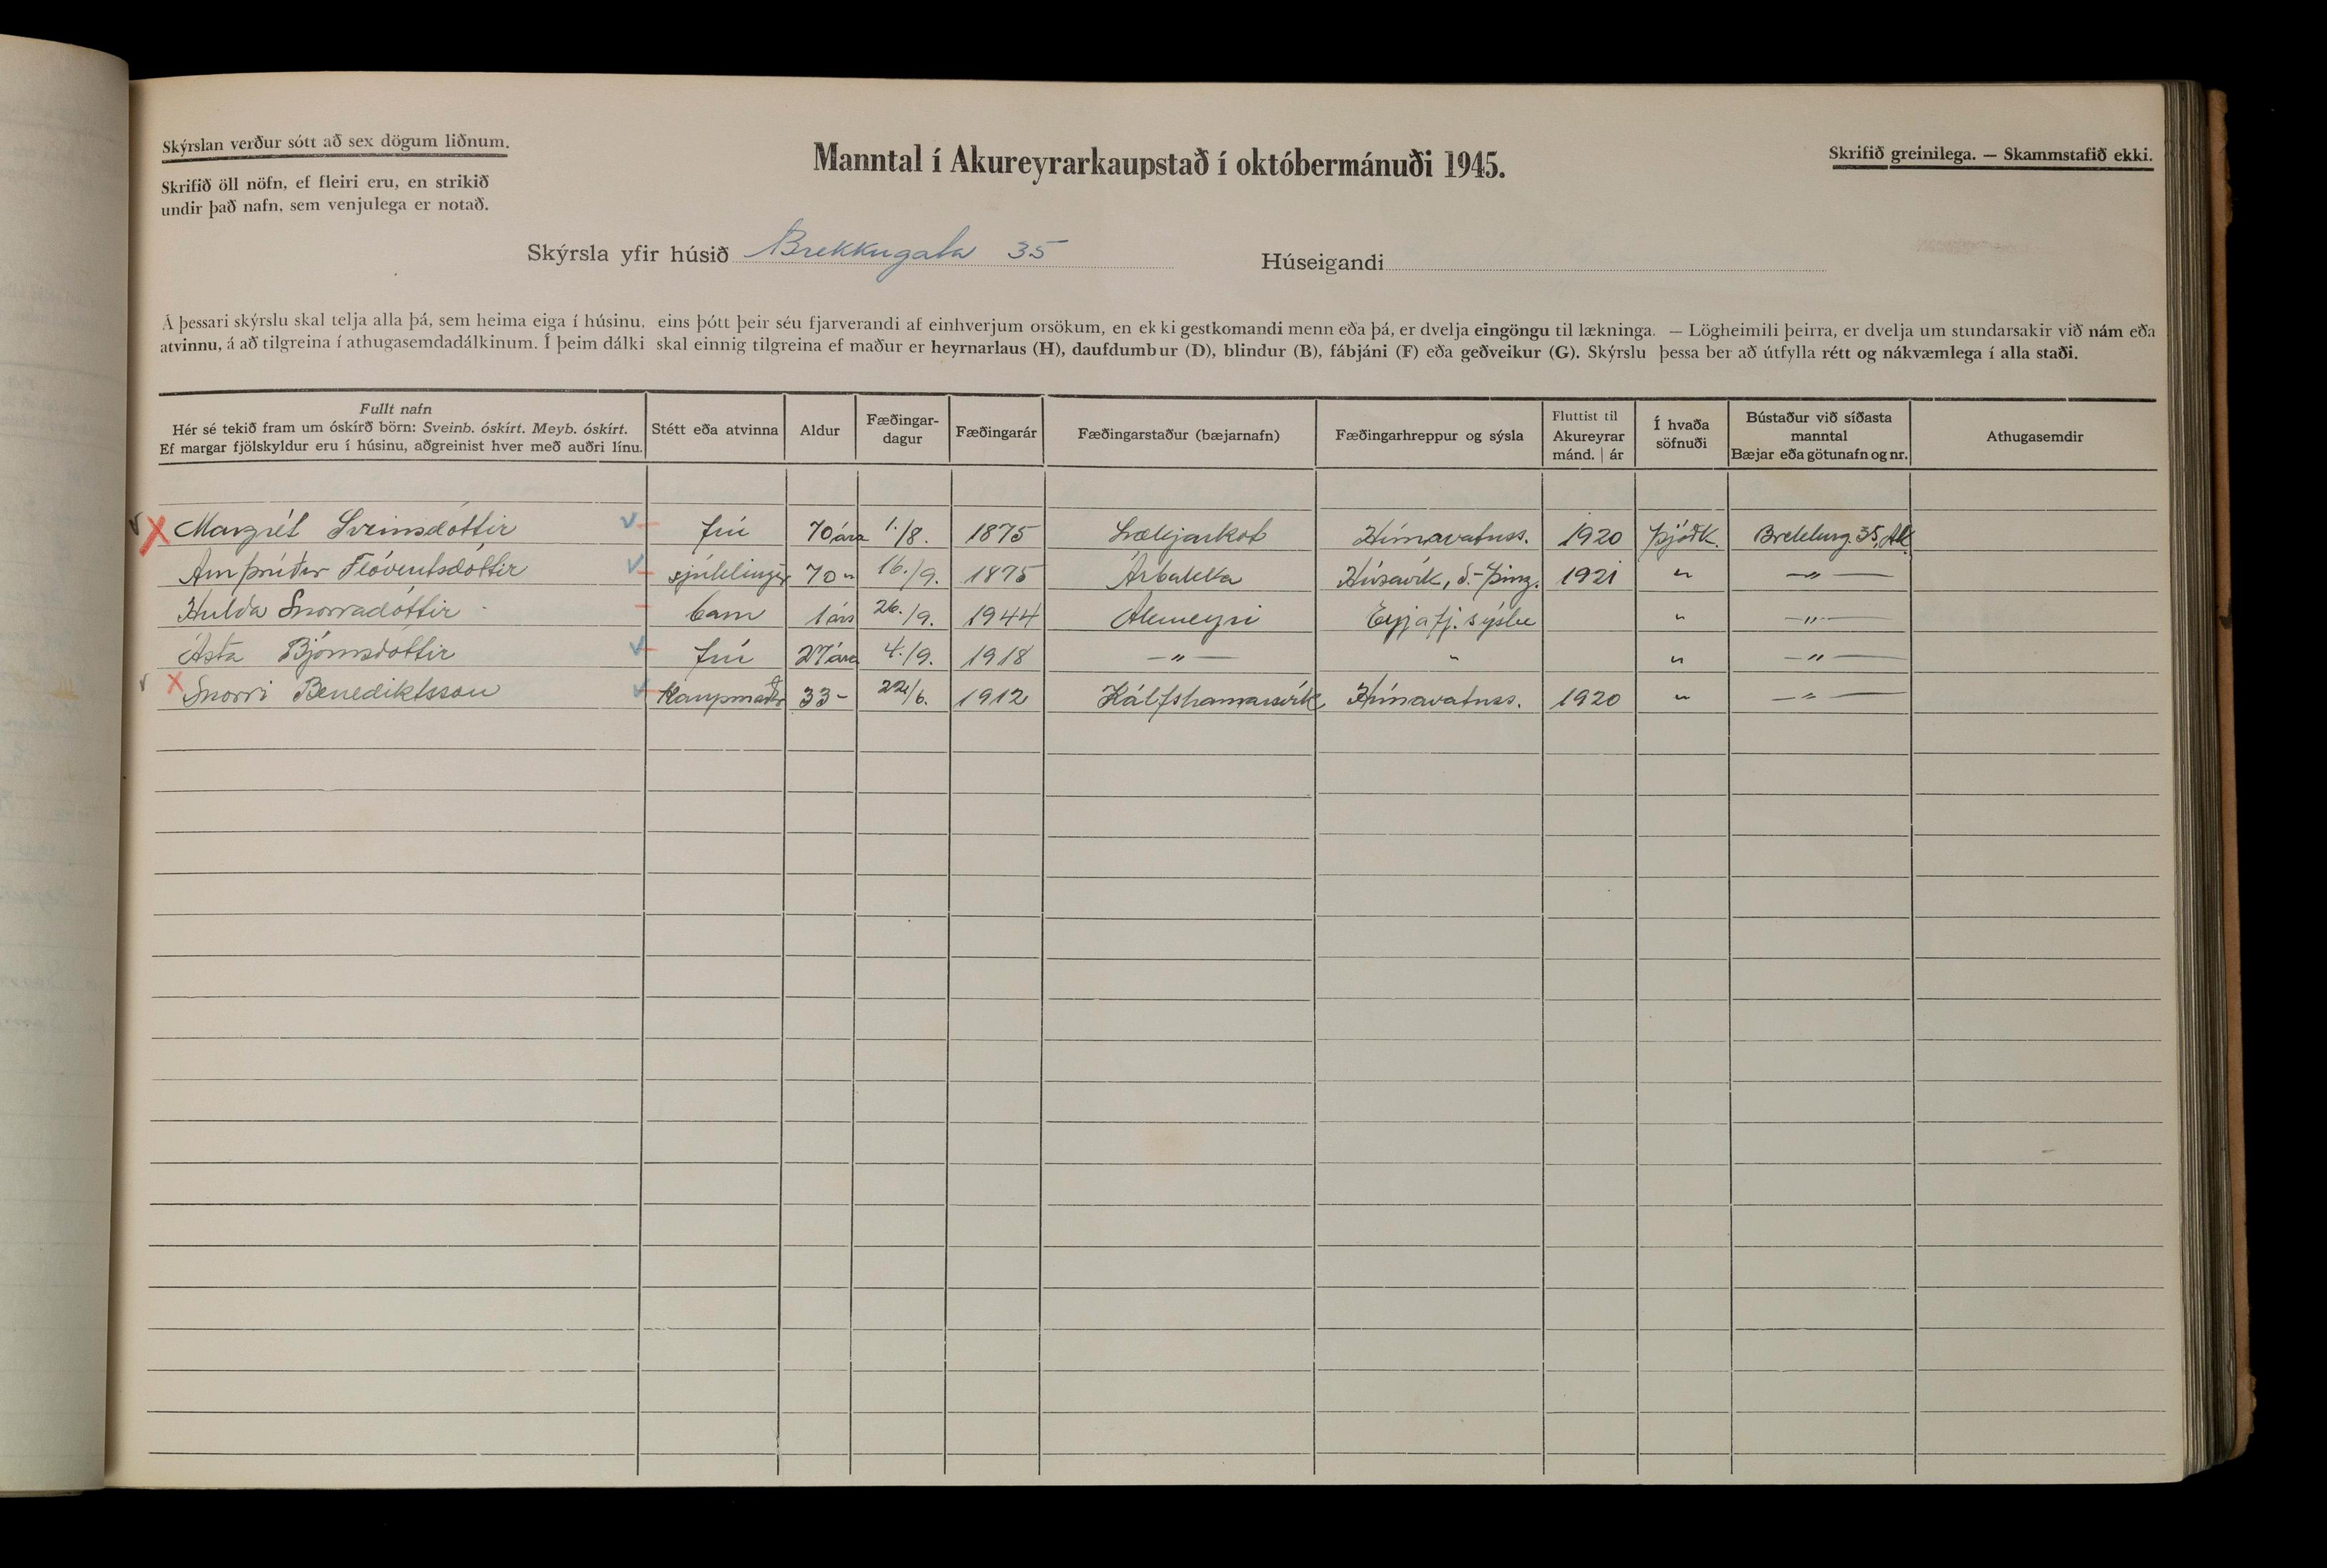 Skýrslan verður sótt að sex dögum liðnum.
Skrifið öll nöfn, ef fleiri eru, en strikið
undir það nafn, sem venjulega er notað.
Manntal í Akureyrarkaupstað í októbermánuði 1945.
Skrifið greinilega. — Skammstafið ekki.
Skýrsla yfir húsið Brekkugata 35 Húseigandi
Á þessari skýrslu skal telja alla þá, sem heima eiga í húsinu, eins þótt þeir séu fjarverandi af einhverjum orsökum, en ekki gestkomandi menn eða þá, er dvelja eingöngu til lækninga. — Lögheimili þeirra, er dvelja um stundarsakir við nám eða
atvinnu, á að tilgreina í athugasemdadálkinum. Í þeim dálki skal einnig tilgreina ef maður er heyrnarlaus (H), daufdumbur (D), blindur (B), fábjáni (F) eða geðveikur (G). Skýrslu þessa ber að útfylla rétt og nákvæmlega í alla staði.
Fullt nafn
Hér sé tekið fram um óskírð börn: Sveinb. óskírt. Meyb. óskírt.
Ef margar fjölskyldur eru í húsinu, aðgreinist hver með auðri línu.
Stétt eða atvinna
Aldur
Fæðingar-
dagur
Fæðingarár
Fæðingarstaður (bæjarnafn)
Fæðingarhreppur og sýsla
Fluttist til
Akureyrar
mánd. | ár
Í hvaða
söfnuði
Bústaður við síðasta
manntal
Bæjar eða götunafn og nr.
Athugasemdir
Margrét Sveinsdóttir frú 70 ára 1./8. 1875 Lækjarkot Húnavatnss. 1920 Þjóðk. Brekkug. 35, Ak
Arnþrúður Flóventsdóttir sjúklingur 70 " 16./9. 1875 Árbakka Húsavík, S.-Þing. 1921 " — " —
Hulda Snorradóttir barn 1 árs 26./9. 1944 Akureyri Eyjafj. sýslu " — " —
Ásta Björnsdóttir frú 27 ára 4./9. 1918 — " — " " — " —
Snorri Benediktsson Kaupmaður 33 - 22/6. 1912 Kálfshamarsvík Húnavatnss. 1920 " — " —